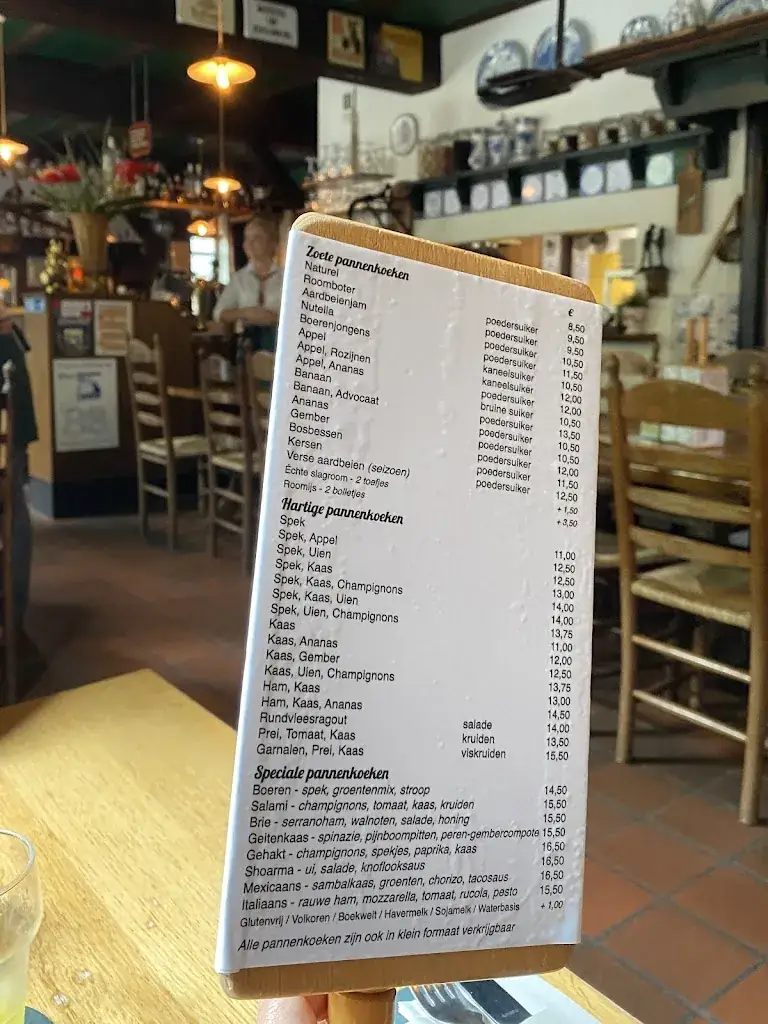 Zoete pannenkoeken €
Naturel 8,50
Roomboter poedersuiker 9,50
Aardbeienjam poedersuiker 9,50
Nutella poedersuiker 10,50
Boerenjongens poedersuiker 11,50
Appel kaneelsuiker 10,50
Appel, Rozijnen kaneelsuiker 12,00
Appel, Ananas poedersuiker 12,00
Banaan bruine suiker 10,50
Banaan, Advocaat poedersuiker 13,50
Ananas poedersuiker 10,50
Gember poedersuiker 10,50
Bosbessen poedersuiker 12,00
Kersen poedersuiker 11,50
Verse aardbeien (seizoen) poedersuiker 12,50
Échte slagroom - 2 toefjes + 1,50
Roomijs - 2 bolletjes + 3,50
Hartige pannenkoeken
Spek 11,00
Spek, Appel 12,50
Spek, Uien 12,50
Spek, Kaas 13,00
Spek, Kaas, Champignons 14,00
Spek, Kaas, Uien 14,00
Spek, Uien, Champignons 13,75
Kaas 11,00
Kaas, Ananas 12,00
Kaas, Gember 12,50
Kaas, Uien, Champignons 13,75
Ham, Kaas 13,00
Ham, Kaas, Ananas 14,50
Rundvleesragout salade 14,00
Prei, Tomaat, Kaas kruiden 13,50
Garnalen, Prei, Kaas viskruiden 15,50
Speciale pannenkoeken
Boeren - spek, groentenmix, stroop 14,50
Salami - champignons, tomaat, kaas, kruiden 15,50
Brie - serranoham, walnoten, salade, honing 15,50
Geitenkaas - spinazie, pijnboompitten, peren-gembercompote 15,50
Gehakt - champignons, spekjes, paprika, kaas 16,50
Shoarma - ui, salade, knoflooksaus 16,50
Mexicaans - sambalkaas, groenten, chorizo, tacosaus 16,50
Italiaans - rauwe ham, mozzarella, tomaat, rucola, pesto 15,50
Glutenvrij / Volkoren / Boekweit / Havermelk / Sojamelk / Waterbasis + 1,00
Alle pannenkoeken zijn ook in klein formaat verkrijgbaar